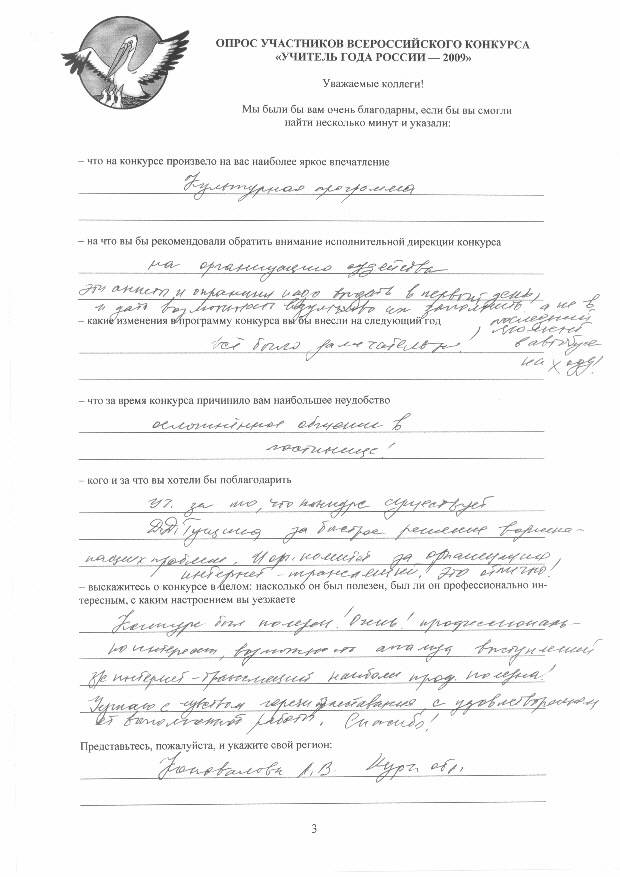 ОПРОС УЧАСТНИКОВ ВСЕРОССИЙСКОГО КОНКУРСА
«УЧИТЕЛЬ ГОДА РОССИИ — 2009»
Уважаемые коллеги!
Мы были бы вам очень благодарны, если бы вы смогли
найти несколько минут и указали:
– что на конкурсе произвело на вас наиболее яркое впечатление
Культурная программа
– на что вы бы рекомендовали обратить внимание исполнительной дирекции конкурса
на организацию хозяйства
Эти анкеты надо выдать в первый день,
и дать возможность их заполнить а не в
– какие изменения в программу конкурса вы бы внесли на следующий год
последний
момент
всё было замечательно!
в автобусе
на ходу!
– что за время конкурса причинило вам наибольшее неудобство
осложнённое общение в
гостинице!
– кого и за что вы хотели бы поблагодарить
за то, что конкурс существует
Д.Д. Гущина за быстрое решение возника-
ющих проблем. И орг. комитет за организацию
интернет-трансляции. Это отлично!
– выскажитесь о конкурсе в целом: насколько он был полезен, был ли он профессионально ин-
тересным, с каким настроением вы уезжаете
Конкурс был полезен! Очень! профессиональ-
но интересен, возможность анализа выступлений
интернет-трансляций наиболее проф. полезна!
Уезжаю с чувством горечи расставания, с удовлетворением
от выполненной работы. Спасибо!
Представьтесь, пожалуйста, и укажите свой регион:
Коновалова Л.В. Кург. обл.
3